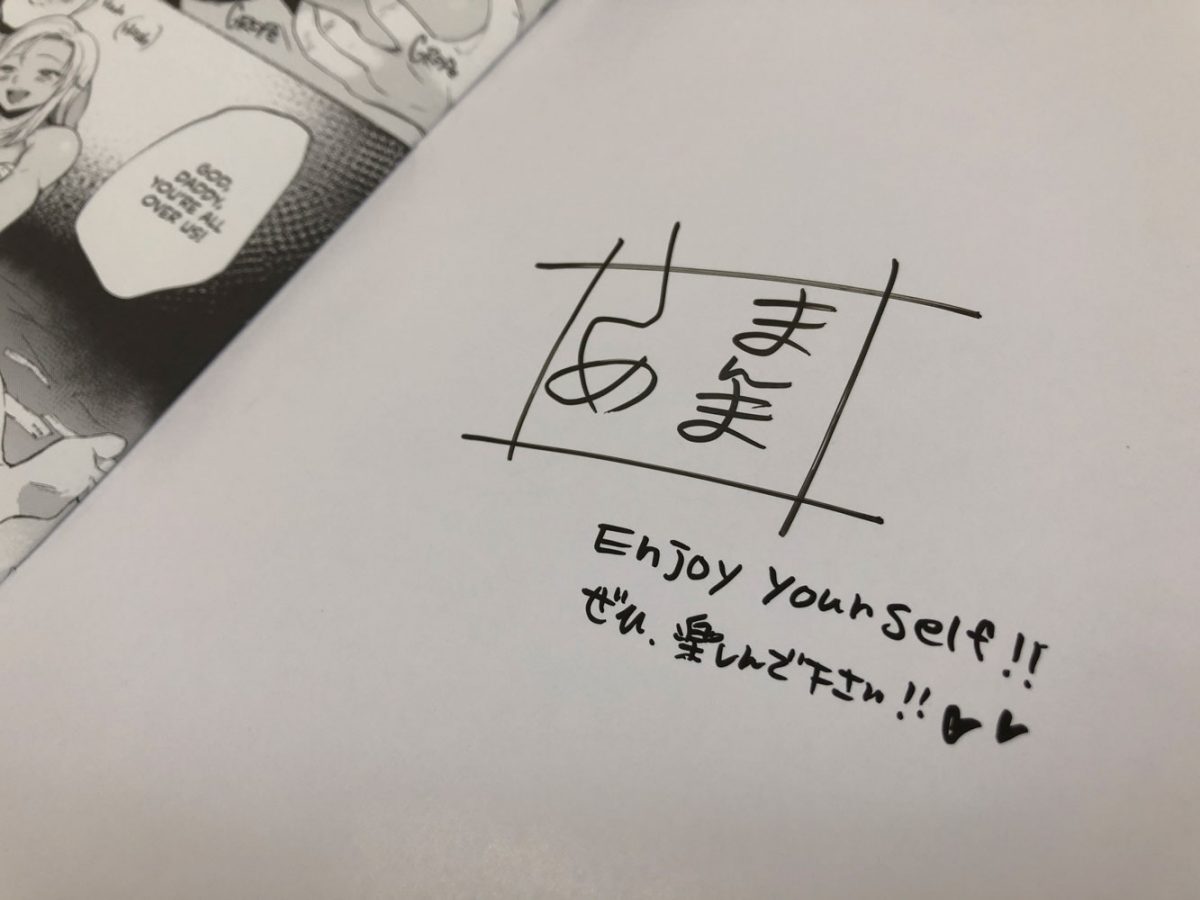 GROPE
GROPE
GOD,
DADDY,
YOU'RE ALL
OVER US!
まんま
Enjoy yourself!!
ぜひ、楽しんで下さい!!♥♥